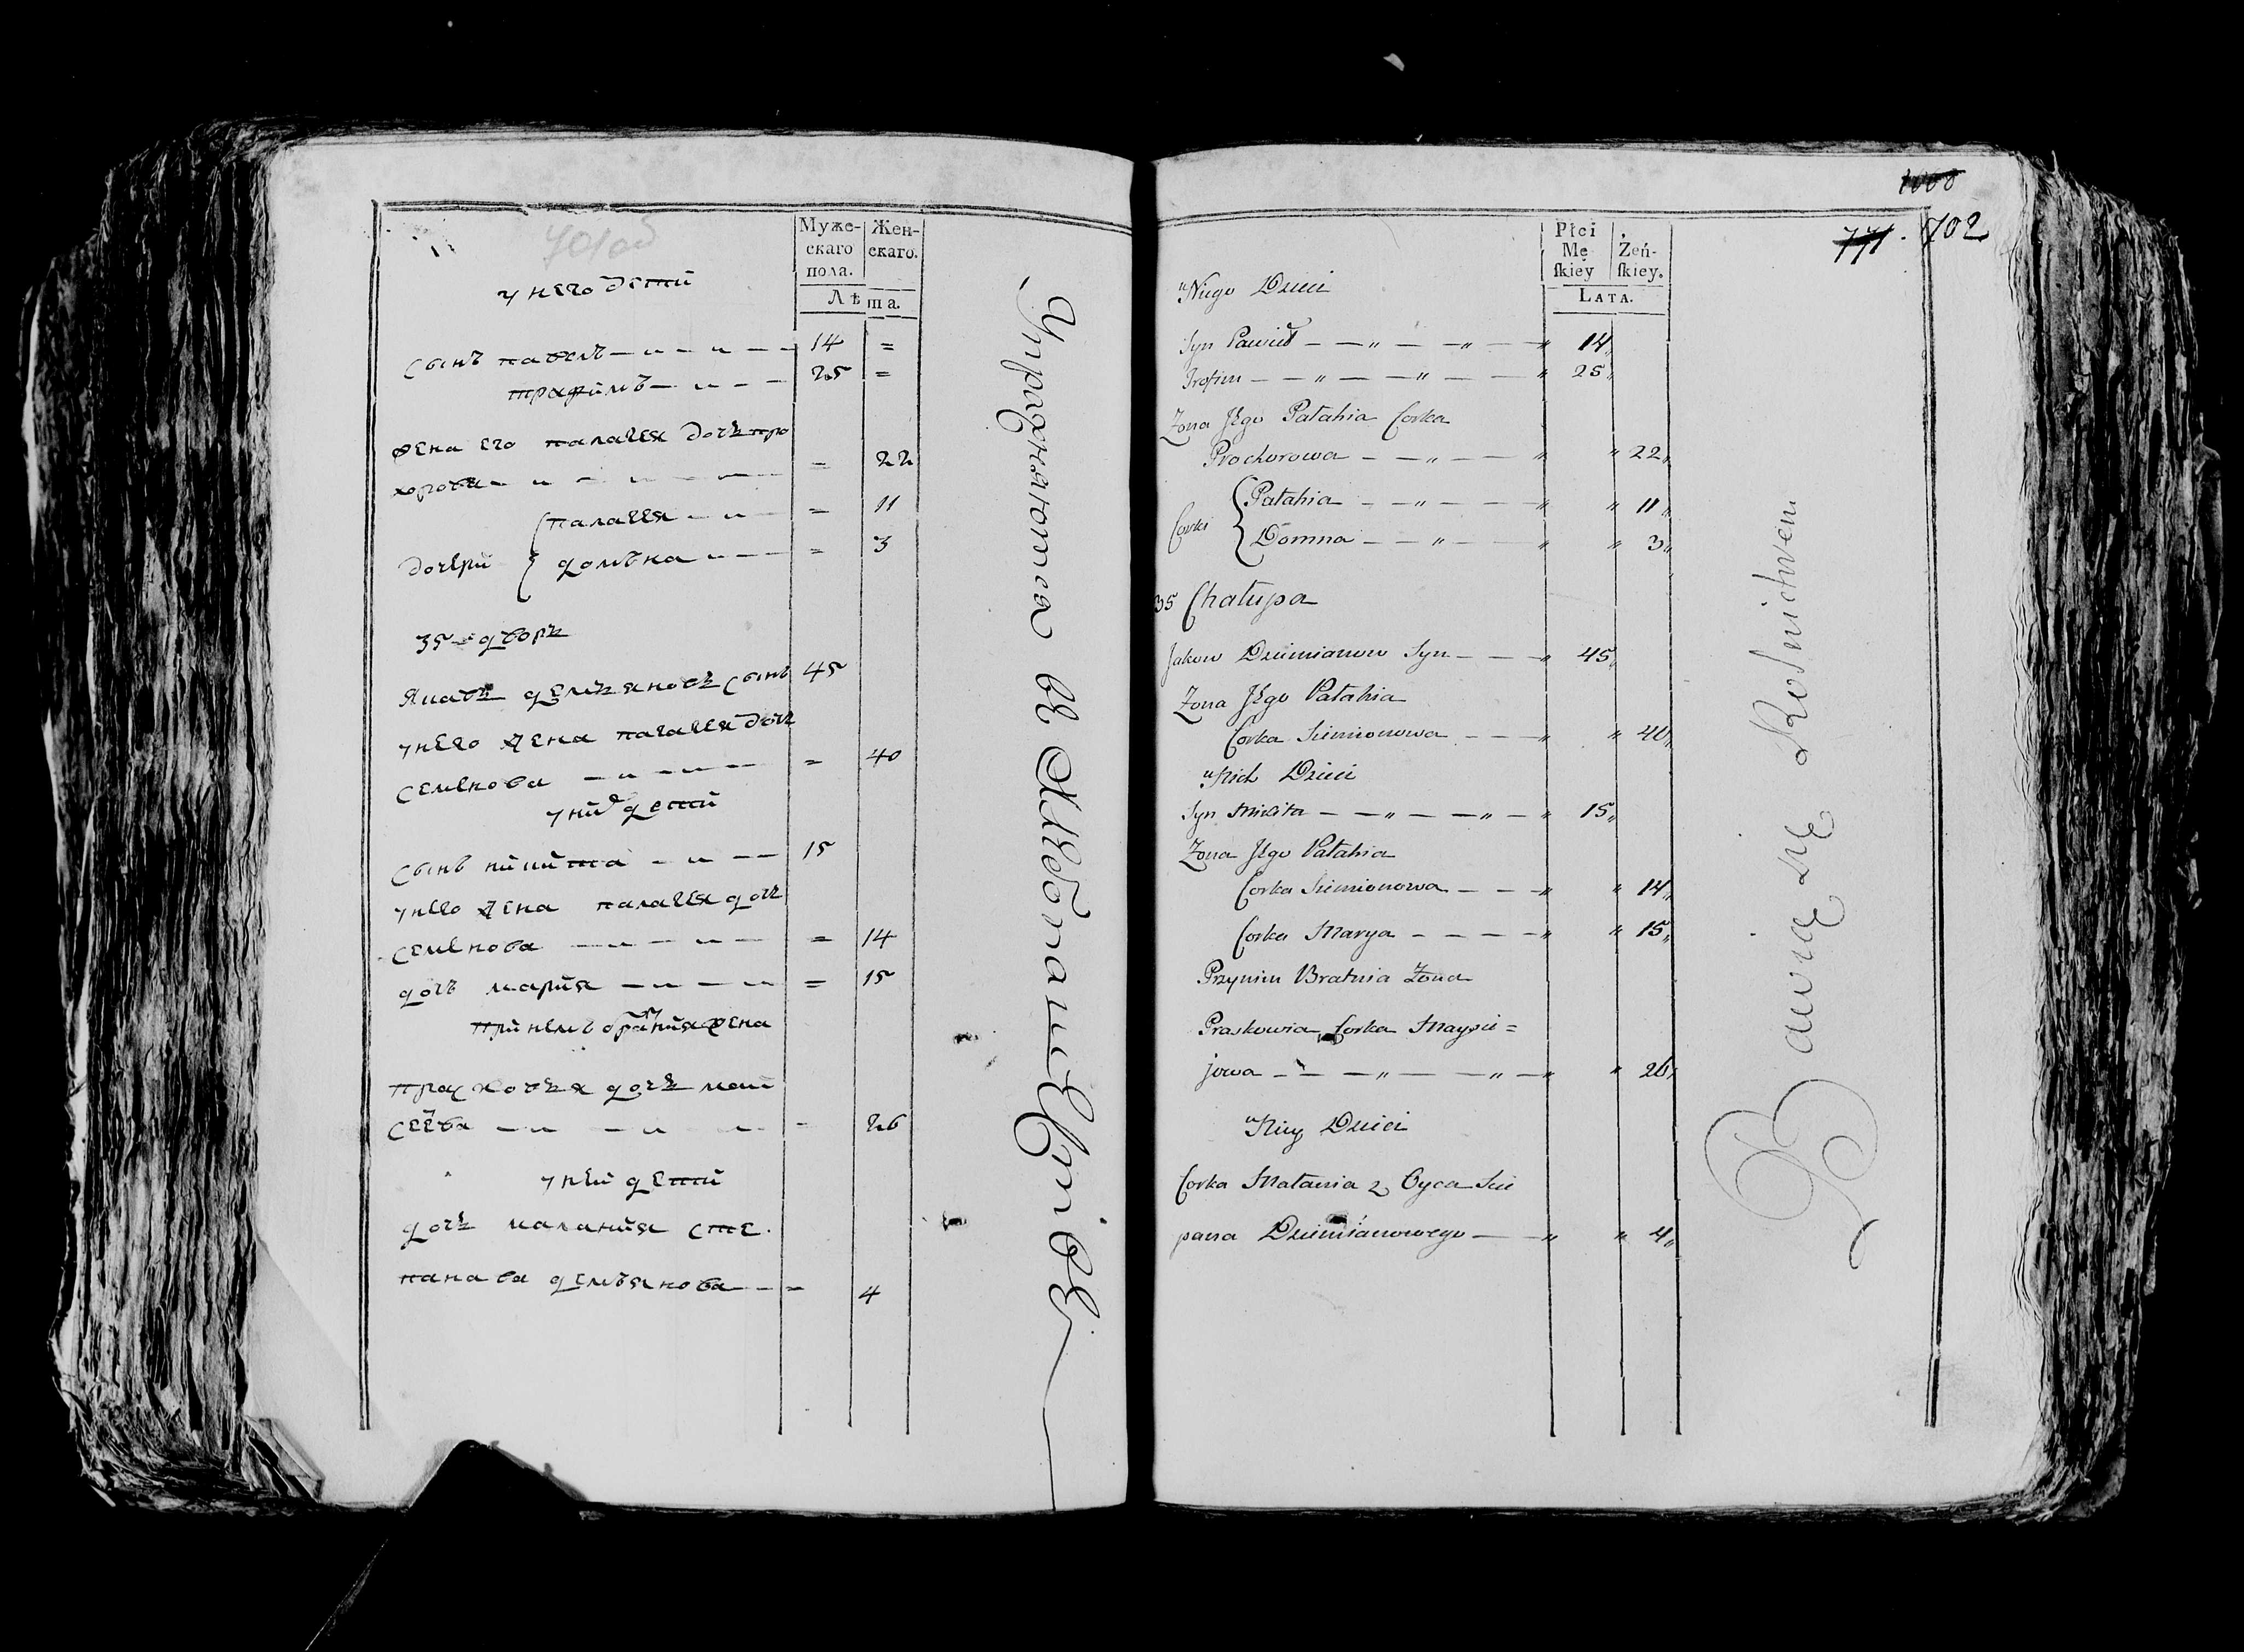 701 об
Муже-
скаго
пола.
Жен-
скаго.
Лѣта.
у него дети
сынъ павелъ — „ — „ — 14 =
трафимъ — „ — — 25 =
жена его палагея дочь про
хорова — „ — „ — — = 22
палагея — „ — = 11
дочери { домъна „ — — = 3
35 – дворъ
Якавъ демъяновъ сынъ 45
у него жена палагея дочь
семенова — „ — „ — = 40
у них дети
сынъ никита — „ — — 15
у него жена палагея дочь
семенова — „ — „ — = 14
дочь мария — „ — „ = 15
при немъ братняя жена
прасковья дочь мои
сеева — „ — „ — „ - 26
у ней дети
дочь малания сте
панава демъянова — — = 4
Упражняются въ Хлебопашествѣ
1008
771. 702
Płci
Mę
ſkiey
Żeń-
ſkiey.
LATA.
u Niego Dzieci
Syn Paweł — — „ — — „ — — „ 14„
Trofim — — „ — — „ — — „ 25„
Zona Jego Pałahia Corka
Prochorowa — — „ — — „ „ 22„
Corki { Pałahia — — „ — — „ „ 11„
Domna — — „ — — „ „ 3„
35 Chałupa
Jakow Dziemianow Syn — — „ 45„
Zona Jego Pałahia
Corka Siemionowa — — „ „ 40„
u Nich Dzieci
Syn Mikita — — „ — — „ — „ 15„
Zona Jego Pałahia
Corka Siemionowa — — „ „ 14„
Corka Marya — — — — „ „ 15„
Przynim Bratnia Zona
Praskowia Corka Maysie=
jowa — — — „ — — „ — „ „ 26„
u Niey Dzieci
Corka Małania z Oyca Scie
pana Dziemianowego — — „ „ 4„
Bawią się Rolnictwem